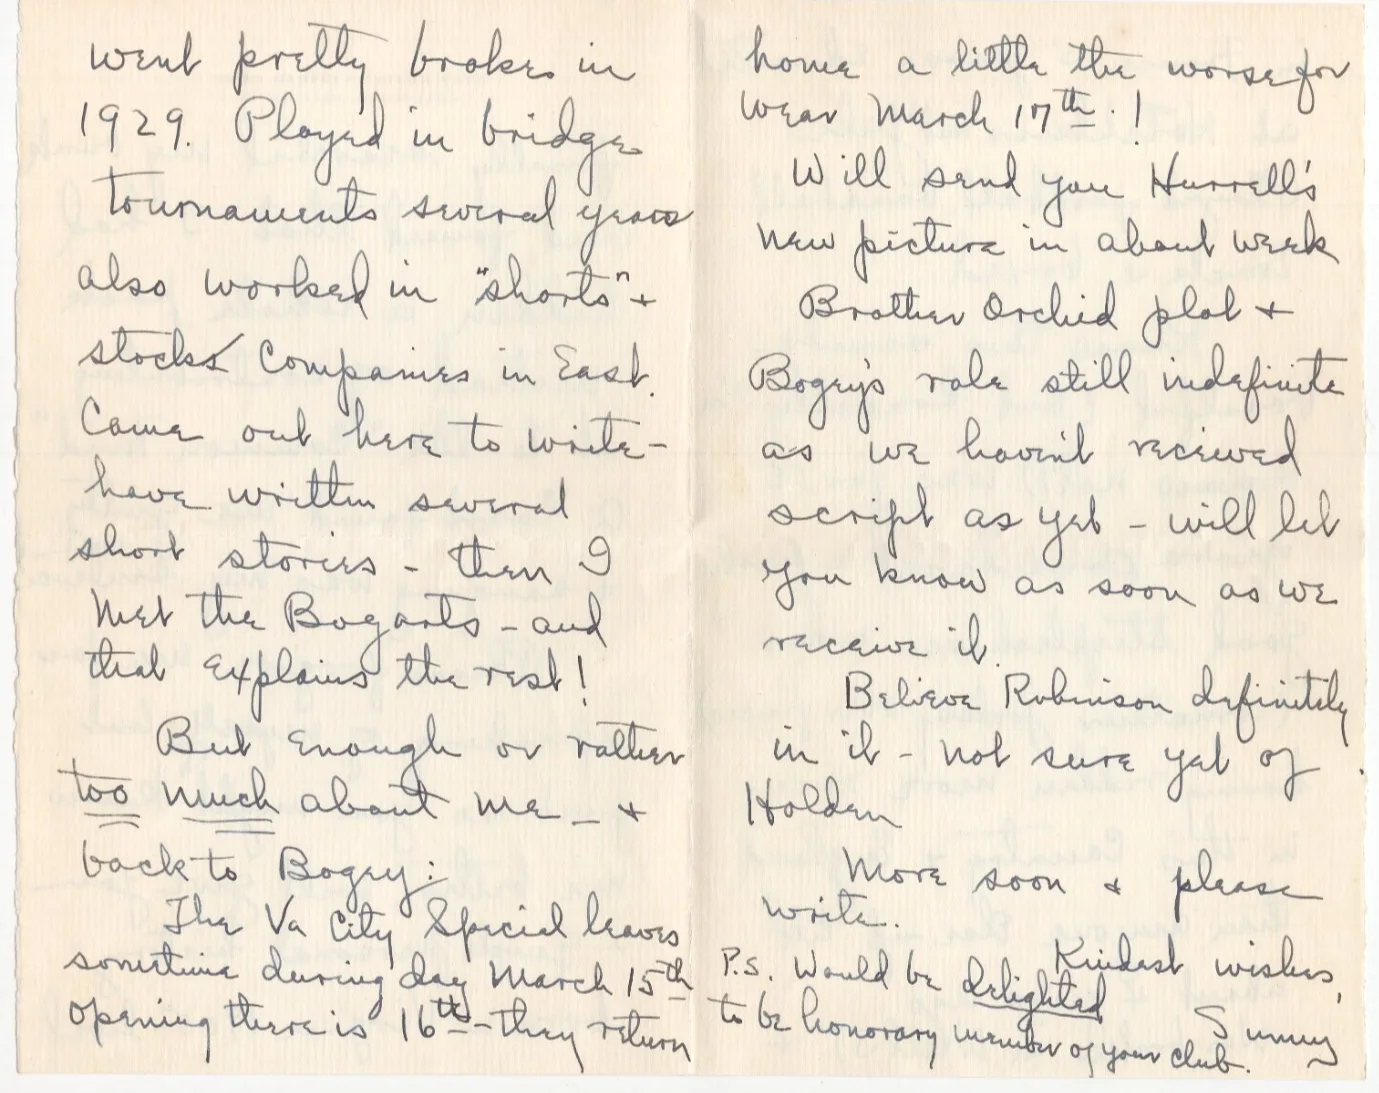 went pretty broke in
1929. Played in bridge
tournaments several years
also worked in "shorts" +
stock Companies in East.
Came out here to write -
have written several
short stories - then I
met the Bogarts - and
that explains the rest!
But enough or rather
too much about me - +
back to Bogey:
The Va City Special leaves
sometime during day March 15th
opening there is 16th - they return
home a little the worse for
wear March 17th!
Will send you Hurrell's
new picture in about week
Brother Orchid plot +
Bogey's role still indefinite
as we haven't received
script as yet - will let
you know as soon as we
receive it.
Believe Robinson definitely
in it - not sure yet of
Holden
More soon + please
write.
Kindest wishes,
Sunny
P.S. Would be delighted
to be honorary member of your club.